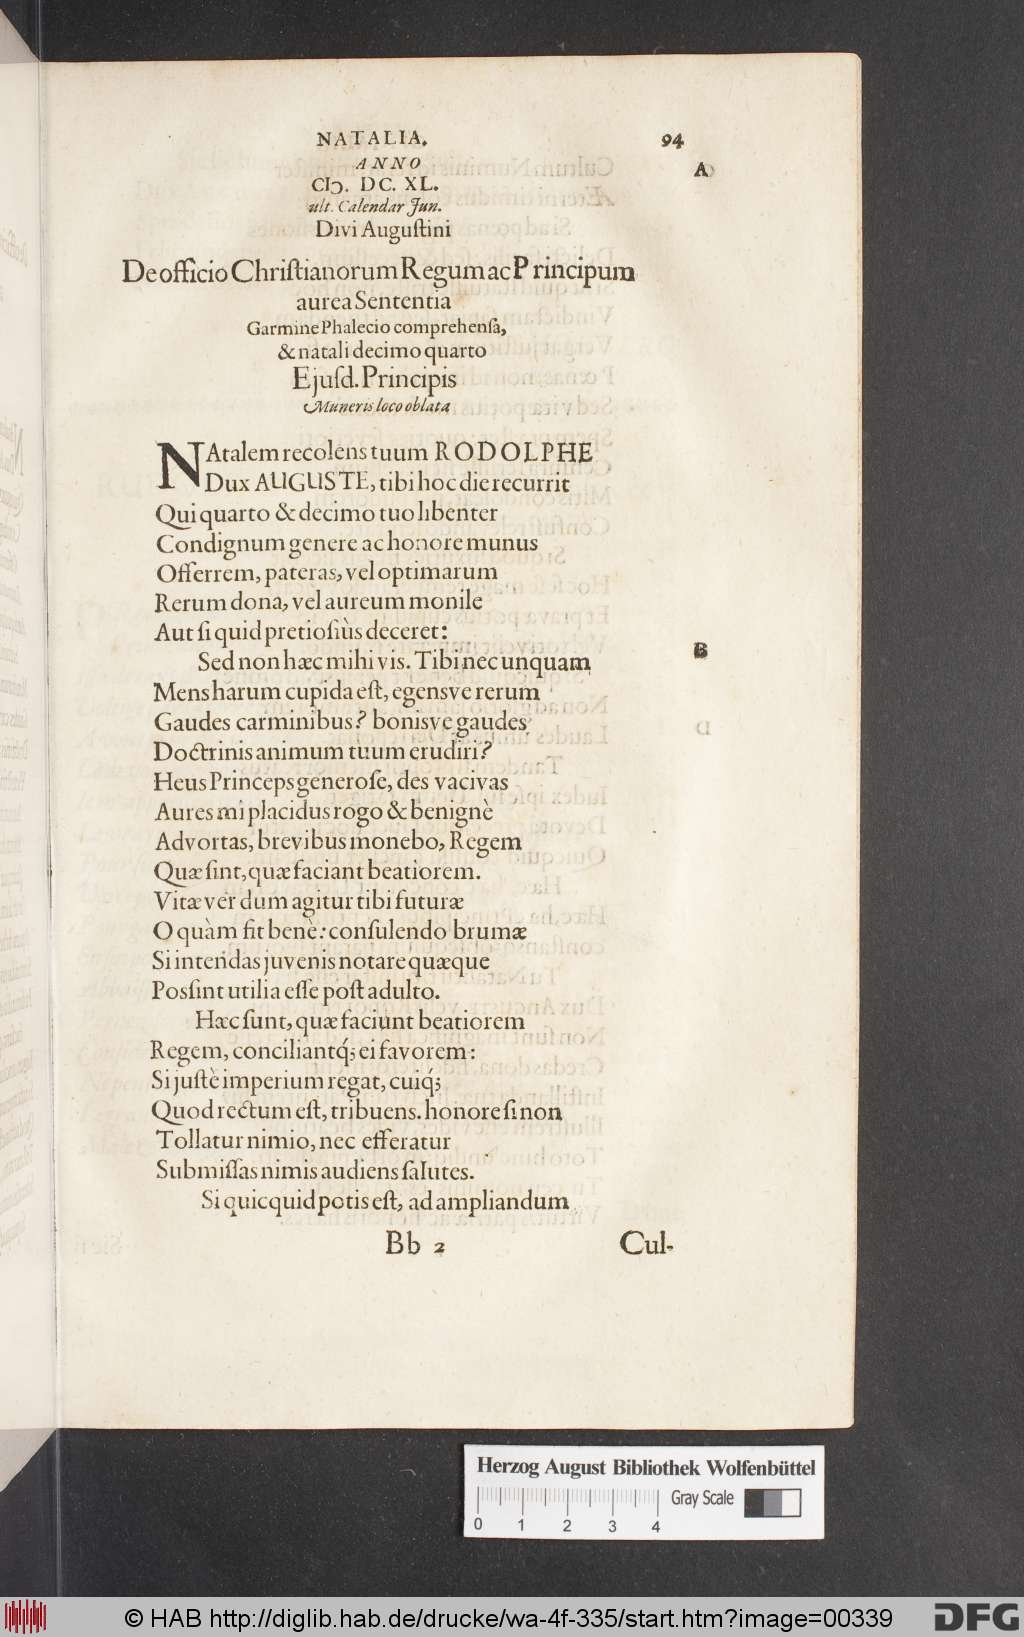 NATALIA.
94
ANNO
A
CIↃ. DC. XL.
ult. Calendar Jun.
Divi Auguſtini
De officio Chriſtianorum Regum ac Principum
aurea Sententia
Garmine Phalecio comprehenſa,
& natali decimo quarto
Ejuſd. Principis
Muneris loco oblata
NAtalem recolens tuum RODOLPHE
Dux AUGUSTE, tibi hoc die recurrit
Qui quarto & decimo tuo libenter
Condignum genere ac honore munus
Offerrem, pateras, vel optimarum
Rerum dona, vel aureum monile
Aut ſi quid pretioſiùs deceret:
Sed non hæc mihi vis. Tibi nec unquam
B
Mens harum cupida eſt, egensve rerum
Gaudes carminibus? bonisve gaudes
Doctrinis animum tuum erudiri?
Heus Princeps generoſe, des vacivas
Aures mi placidus rogo & benignè
Advortas, brevibus monebo, Regem
Quæ ſint, quæ faciant beatiorem.
Vitæ ver dum agitur tibi futuræ
O quàm fit benè: conſulendo brumæ
Si intendas juvenis notare quæque
Posſint utilia eſſe poſt adulto.
Hæc ſunt, quæ faciunt beatiorem
Regem, conciliantq́; ei favorem:
Si juſtè imperium regat, cuiq́;
Quod rectum eſt, tribuens. honore ſi non
Tollatur nimio, nec efferatur
Submiſſas nimis audiens ſalutes.
Si quicquid potis eſt, ad ampliandum
Bb 2
Cul-
Herzog August Bibliothek Wolfenbüttel
Gray Scale
0 1 2 3 4
© HAB http://diglib.hab.de/drucke/wa-4f-335/start.htm?image=00339
DFG